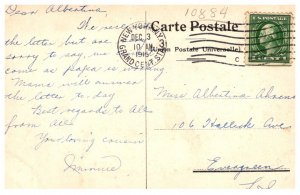 Dear Albertina
10884
The
the letter but are
sorry to say, no
come as papa is
Mama will answer
the letter to day
Best regards to All
from All
Your loving cousin
Carte Postale
(Union Postale Universelle)
NEW YORK
GRAND CENT. STA.
DEC 3
10 AM
1915
Miss Albertina Ahrens
106 Halleck Ave
Evergreen
L.I.